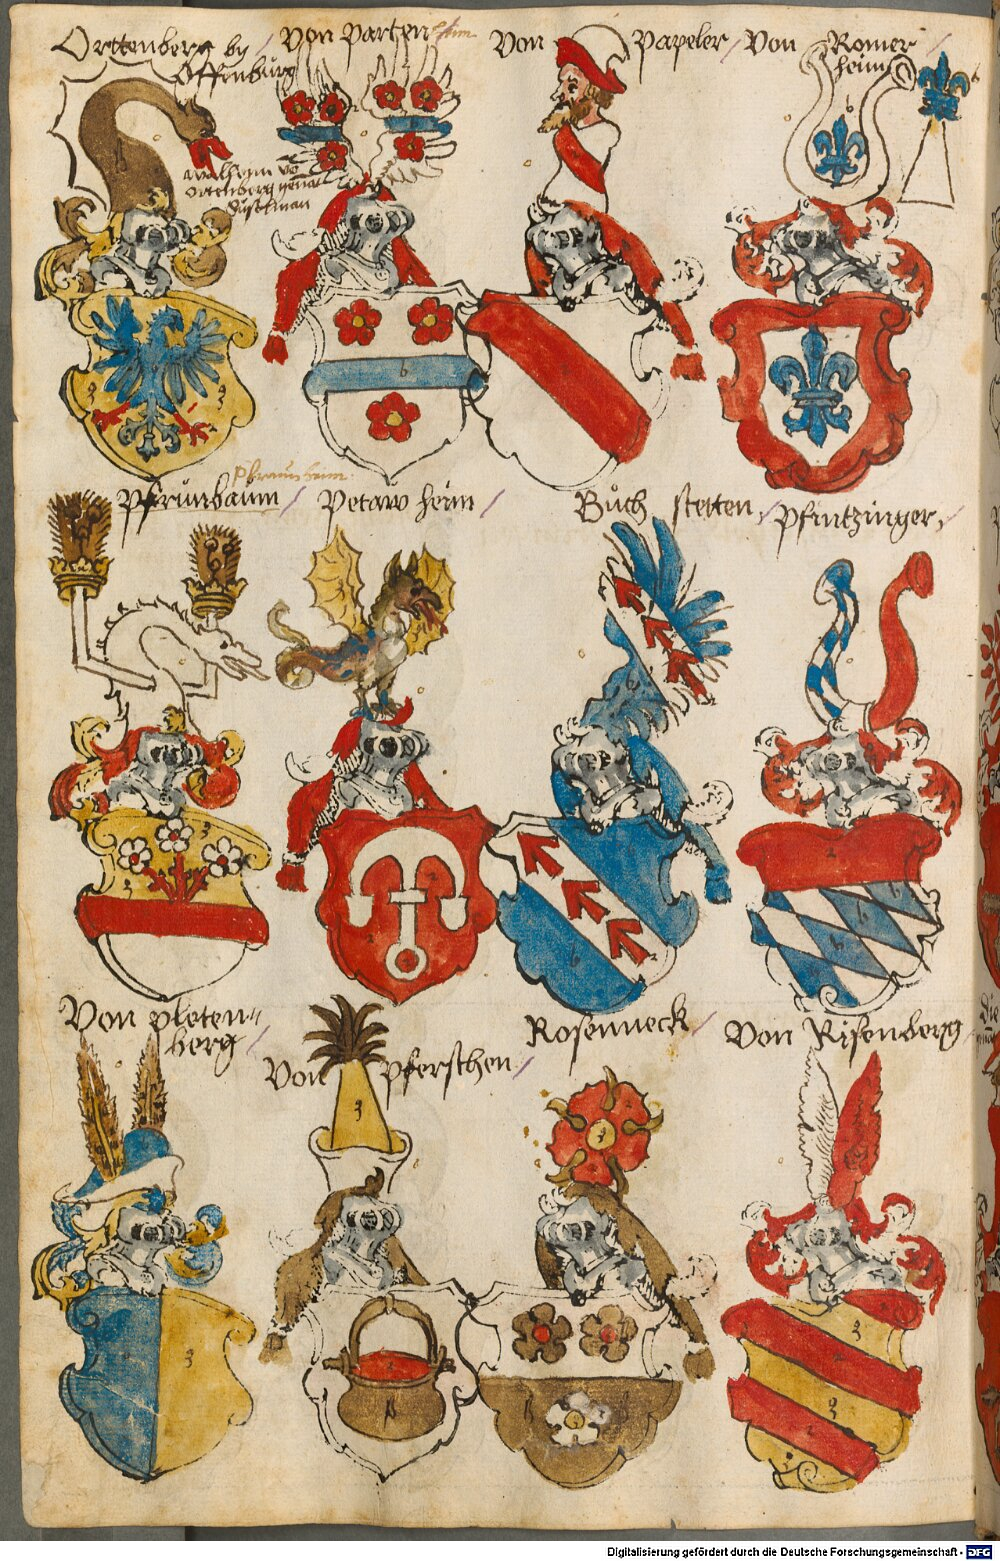 Orttenberg by /
Offenburg
Wilhelm vō
Ortenberg genāt
Von Partenheim
Von Papeler /
Von Romer /
heim
b
Pfrūnbaum /
Petaw heim /
Būch stetten /
Pfintzinger /
Von pleten=
berg /
Von Pferschen /
Rosenneck /
Von Risenberg
Digitalisierung gefördert durch die Deutsche Forschungsgemeinschaft - DFG